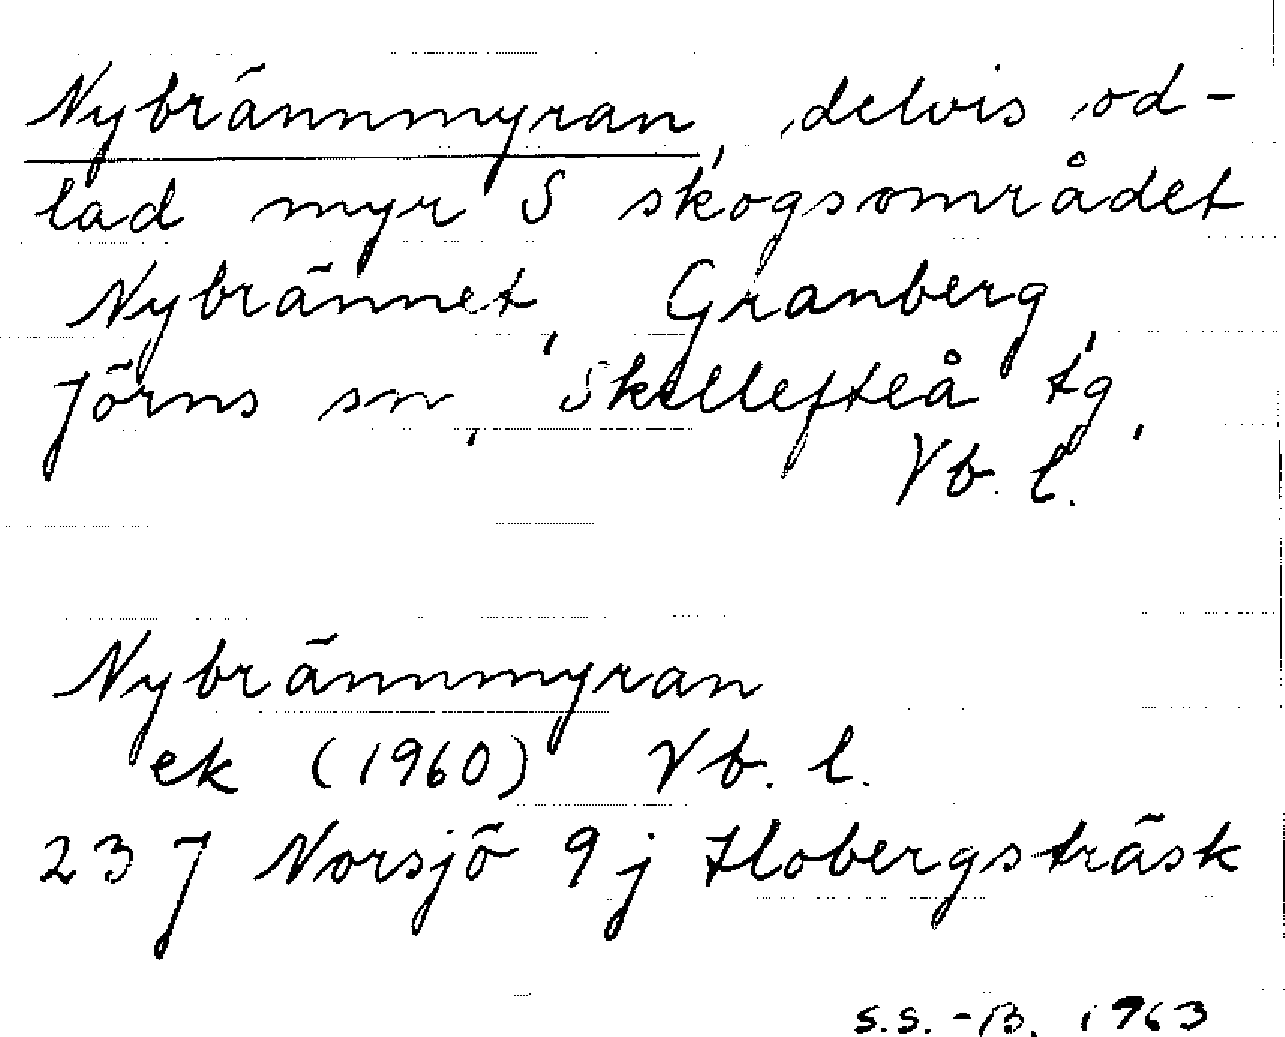 Nybrännmyran, delvis od-
lad myr S skogsområdet
Nybrännet, Granberg,
Jörns sn, Skellefteå tg,
Vb. l.
Nybrännmyran
ek (1960) Vb. l.
23 J Norsjö 9j Flobergsträsk
S.S.-B. 1963